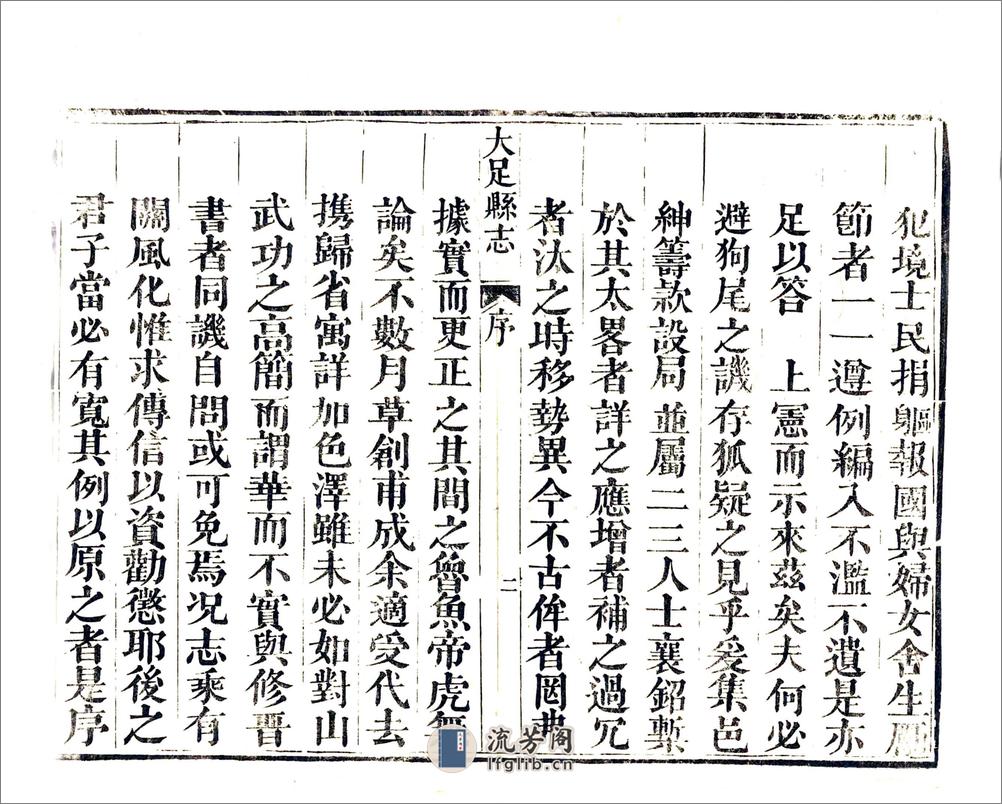 犯境士民捐軀報國與婦女舍生厲
節者一一遵例編入不濫不遺是亦
足以答　上憲而示來茲矣夫何必
避狗尾之譏存狐疑之見乎爰集邑
紳籌款設局並屬二三人士襄鉛槧
於其太畧者詳之應增者補之過冗
者汰之時移勢異今不古侔者罔弗
大足縣志　序　二
據實而更正之其間之魯魚帝虎無
論矣不數月草創甫成余適受代去
携歸省寓詳加色澤雖未必如對山
武功之高簡而謂華而不實與修晋
書者同譏自問或可免焉况志乘有
關風化惟求傳信以資勸懲耶後之
君子當必有寬其例以原之者是序
流芳阁
lfglib.cn